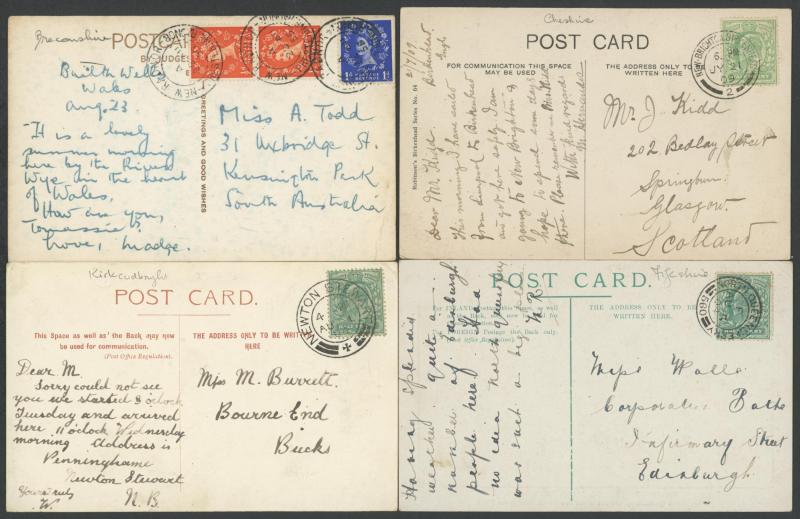 Breconshire
POST CARD
BY JUDGES
GREETINGS AND GOOD WISHES
Builth Wells
Wales
Aug. 23
It is a lovely
summer morning
here by the River
Wye in the heart
of Wales.
How are you,
Love, Madge.
Miss A. Todd
31 Uxbridge St.
Kensington Park
South Australia
Cheshire
POST CARD
FOR COMMUNICATION THIS SPACE
MAY BE USED
THE ADDRESS ONLY TO BE
WRITTEN HERE
Robinson's Birkenhead Series No. 64
21/7/09
Birkenhead
Dear Mr Kidd
This morning I have sailed
from Liverpool to Birkenhead
and got here safely. I am
going to New Brighton &
hope to spend some days
there. Please remember me
With kind regards
Mr J. Kidd
202 Bedlay Street
Springburn
Glasgow.
Scotland
Kirkcudbright
POST CARD.
This Space as well as the Back may now
be used for communication.
(Post Office Regulation).
THE ADDRESS ONLY TO BE WRITTEN
HERE
NEWTON STEWART
Dear M.
Sorry could not see
you we started 8 o'clock
Tuesday and arrived
here 11 o'clock Wednesday
morning Address is
Penninghame
Newton Stewart
N.B.
Yours truly
W.
Miss M. Burrett.
Bourne End
Bucks
Fifeshire
POST CARD.
THE ADDRESS ONLY TO BE
WRITTEN HERE
Having splendid
weather quite a
number of Edinburgh
people here. Had
no idea North Queensferry
was such a big place
Corporation Baths
Infirmary Street
Edinburgh